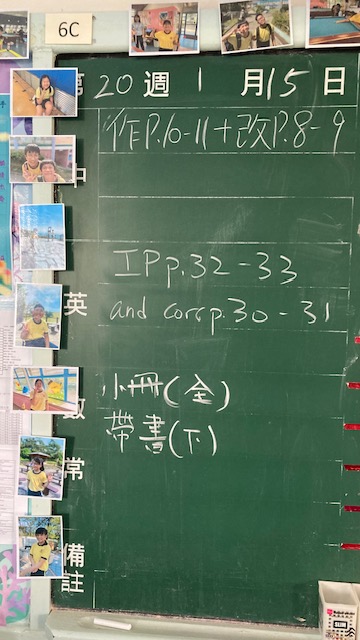 6C
第 20 週 1 月 15 日
中 作P.10-11+改P.8-9
IP p.32-33
英 and corr p.30-31
數 小冊(全)
帶書(下)
常
備
註